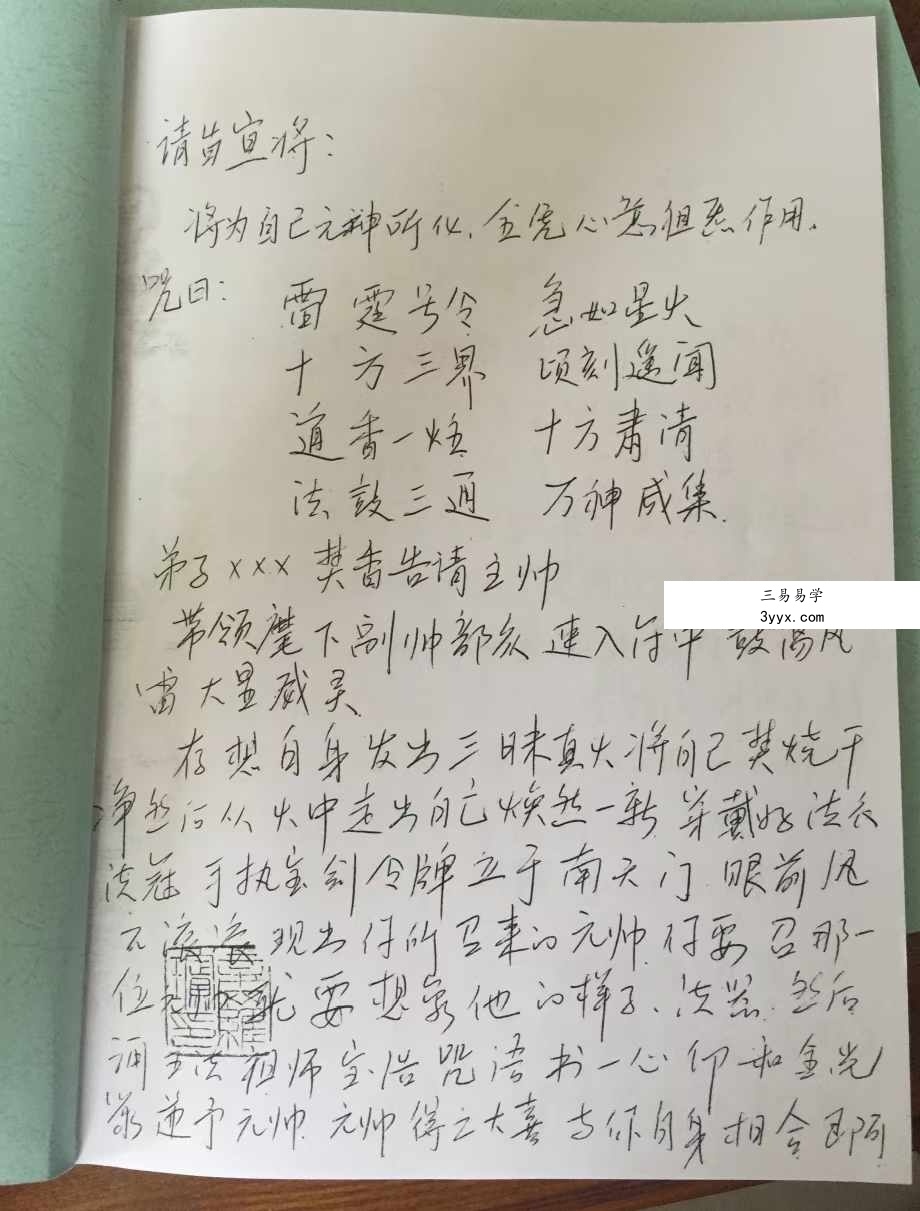 请旨宣将：
将为自己元神所化，全凭心意祖炁作用。
咒曰： 雷霆号令 急如星火
十方三界 顷刻遥闻
道香一炷 十方肃清
法鼓三通 万神咸集
弟子××× 焚香告请主帅
三易易学
3yyx.com
带领麾下副帅部众 速入符中 鼓
雷大显威灵
存想自身发出三昧真火将自己焚烧干
净然后从火中走出自己焕然一新 穿戴好法衣
法冠 手执宝剑令牌立于南天门 眼前风
云滚滚 现出你所召来的元帅 你要召那一
位 就要想象他的样子、法器 然后
诵 法祖师宝诰咒语书一心印和金光
篆递予元帅 元帅得之大喜 与你自身相合 即可